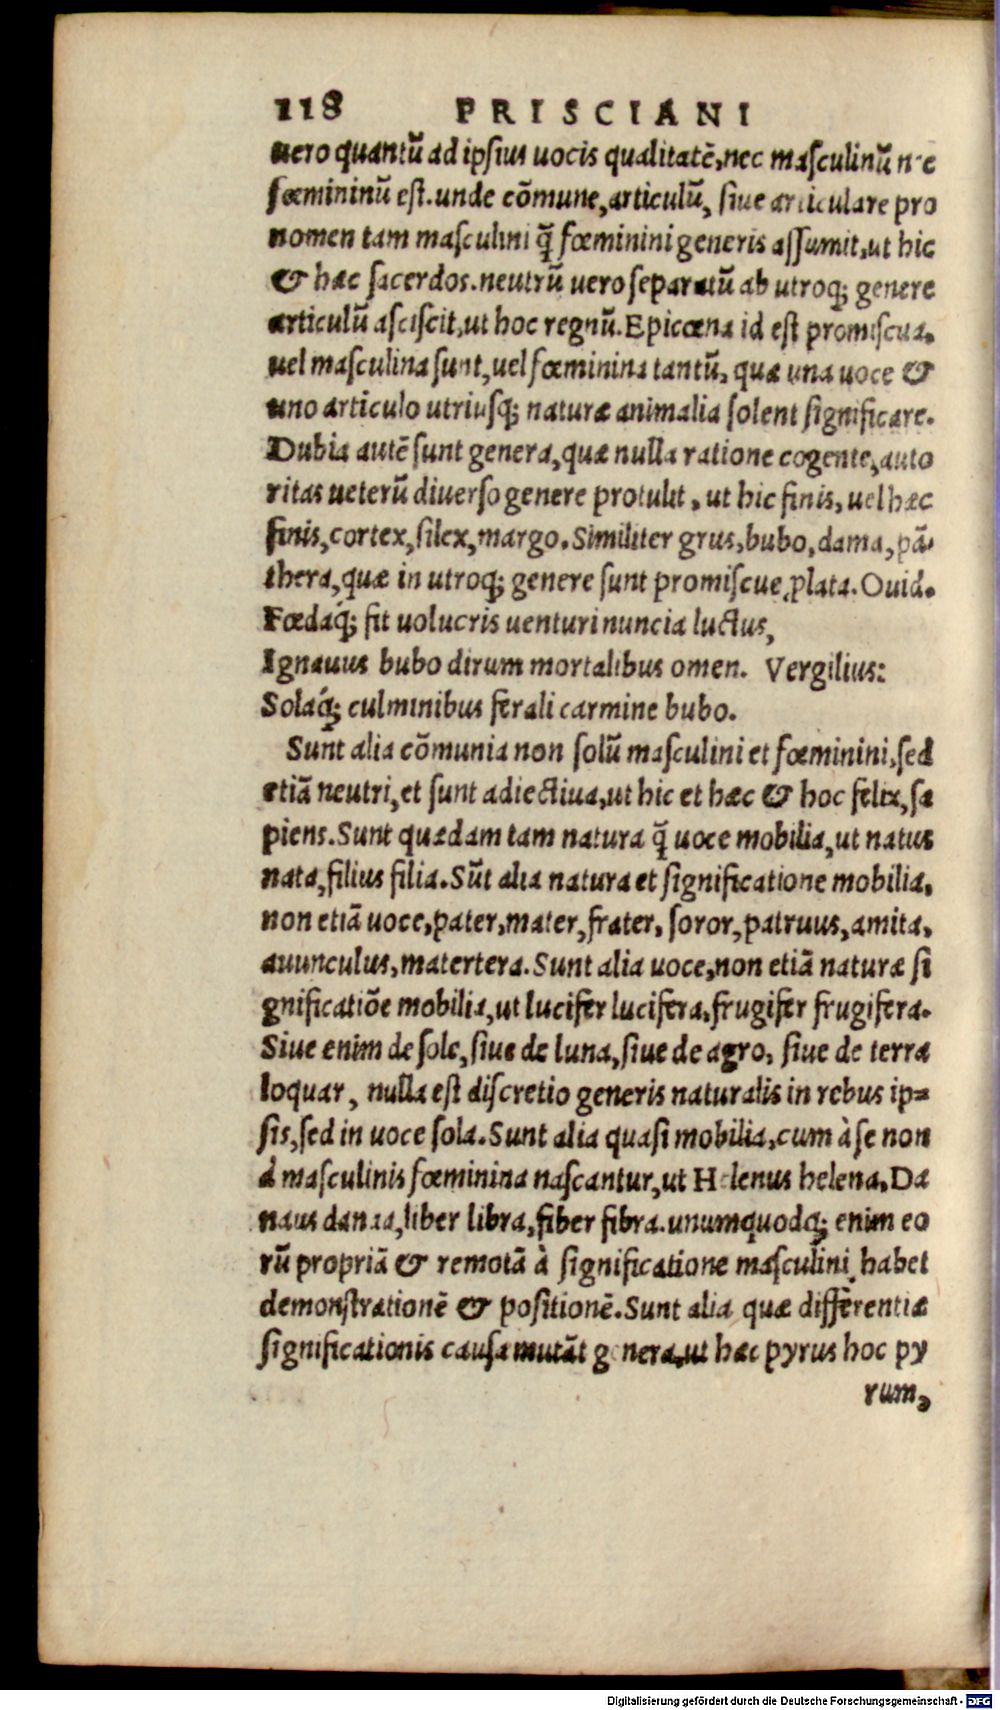 118 PRISCIANI
uero quantũ ad ipsius uocis qualitatẽ, nec masculinũ nec
fœmininũ est. unde cõmune, articulũ, siue articulare pro
nomen tam masculini q̃ fœminini generis assumit, ut hic
& hæc sacerdos. neutrũ uero separatũ ab utroq; genere
articulũ asciscit, ut hoc regnũ. Epicœna id est promiscua,
uel masculina sunt, uel fœminina tantũ, quæ una uoce &
uno articulo utriusq; naturæ animalia solent significare.
Dubia autẽ sunt genera, quæ nulla ratione cogente, auto
ritas ueterũ diuerso genere protulit, ut hic finis, uel hæc
finis, cortex, silex, margo. Similiter grus, bubo, dama, pã-
thera, quæ in utroq; genere sunt promiscue ꝓlata. Ouid.
Fœdaq́; fit uolucris uenturi nuncia luctus,
Ignauus bubo dirum mortalibus omen. Vergilius:
Solaq́; culminibus ferali carmine bubo.
Sunt alia cõmunia non solũ masculini et fœminini, sed
etiã neutri, et sunt adiectiua, ut hic et hæc & hoc felix, sa
piens. Sunt quædam tam natura q̃ uoce mobilia, ut natus
nata, filius filia. Sũt alia natura et significatione mobilia,
non etiã uoce, pater, mater, frater, soror, patruus, amita,
auunculus, matertera. Sunt alia uoce, non etiã naturæ si
gnificatiõe mobilia, ut lucifer lucifera, frugifer frugifera.
Siue enim de sole, siue de luna, siue de agro, siue de terra
loquar, nulla est discretio generis naturalis in rebus ip=
sis, sed in uoce sola. Sunt alia quasi mobilia, cum à se non
à masculinis fœminina nascantur, ut Helenus helena, Da
naus danaa, liber libra, fiber fibra. unumquodq; enim eo
rũ propriã & remotã à significatione masculini habet
demonstrationẽ & positionẽ. Sunt alia quæ differentiæ
significationis causa mutãt genera, ut hæc pyrus hoc py
rum,
Digitalisierung gefördert durch die Deutsche Forschungsgemeinschaft - DFG